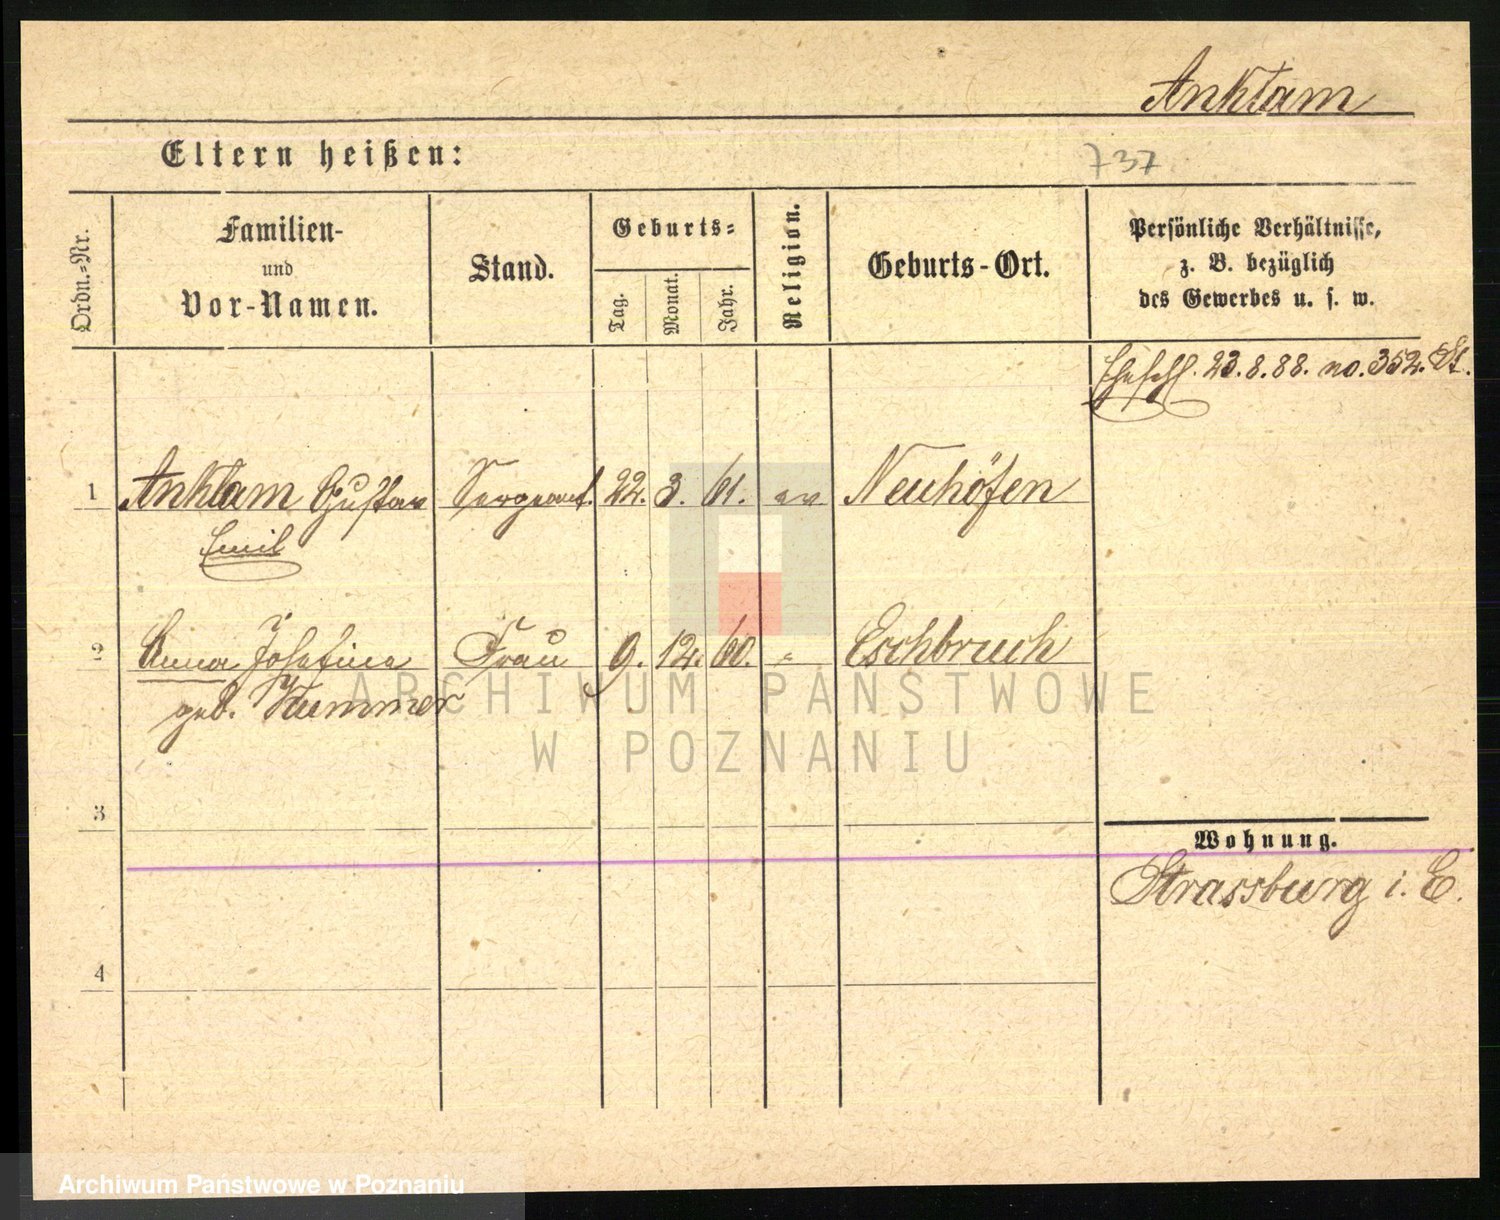 Anklam
Eltern heißen:
737
Ordn.=Nr.
Familien-
und
Vor-Namen.
Stand.
Geburts=
Tag.
Monat.
Jahr.
Religion.
Geburts-Ort.
Persönliche Verhältnisse,
z. B. bezüglich
des Gewerbes u. s. w.
23.8.88. no. 352. St.
1 Anklam Gustav Sergeant. 22. 3. 61. ev Neuhöfen
Emil
2 Anna Josefine Frau 9. 12. 60. " Eschbruch
geb. Kummer
ARCHIWUM PAŃSTWOWE
W POZNANIU
3
Wohnung.
Strassburg i. E.
4
Archiwum Państwowe w Poznaniu